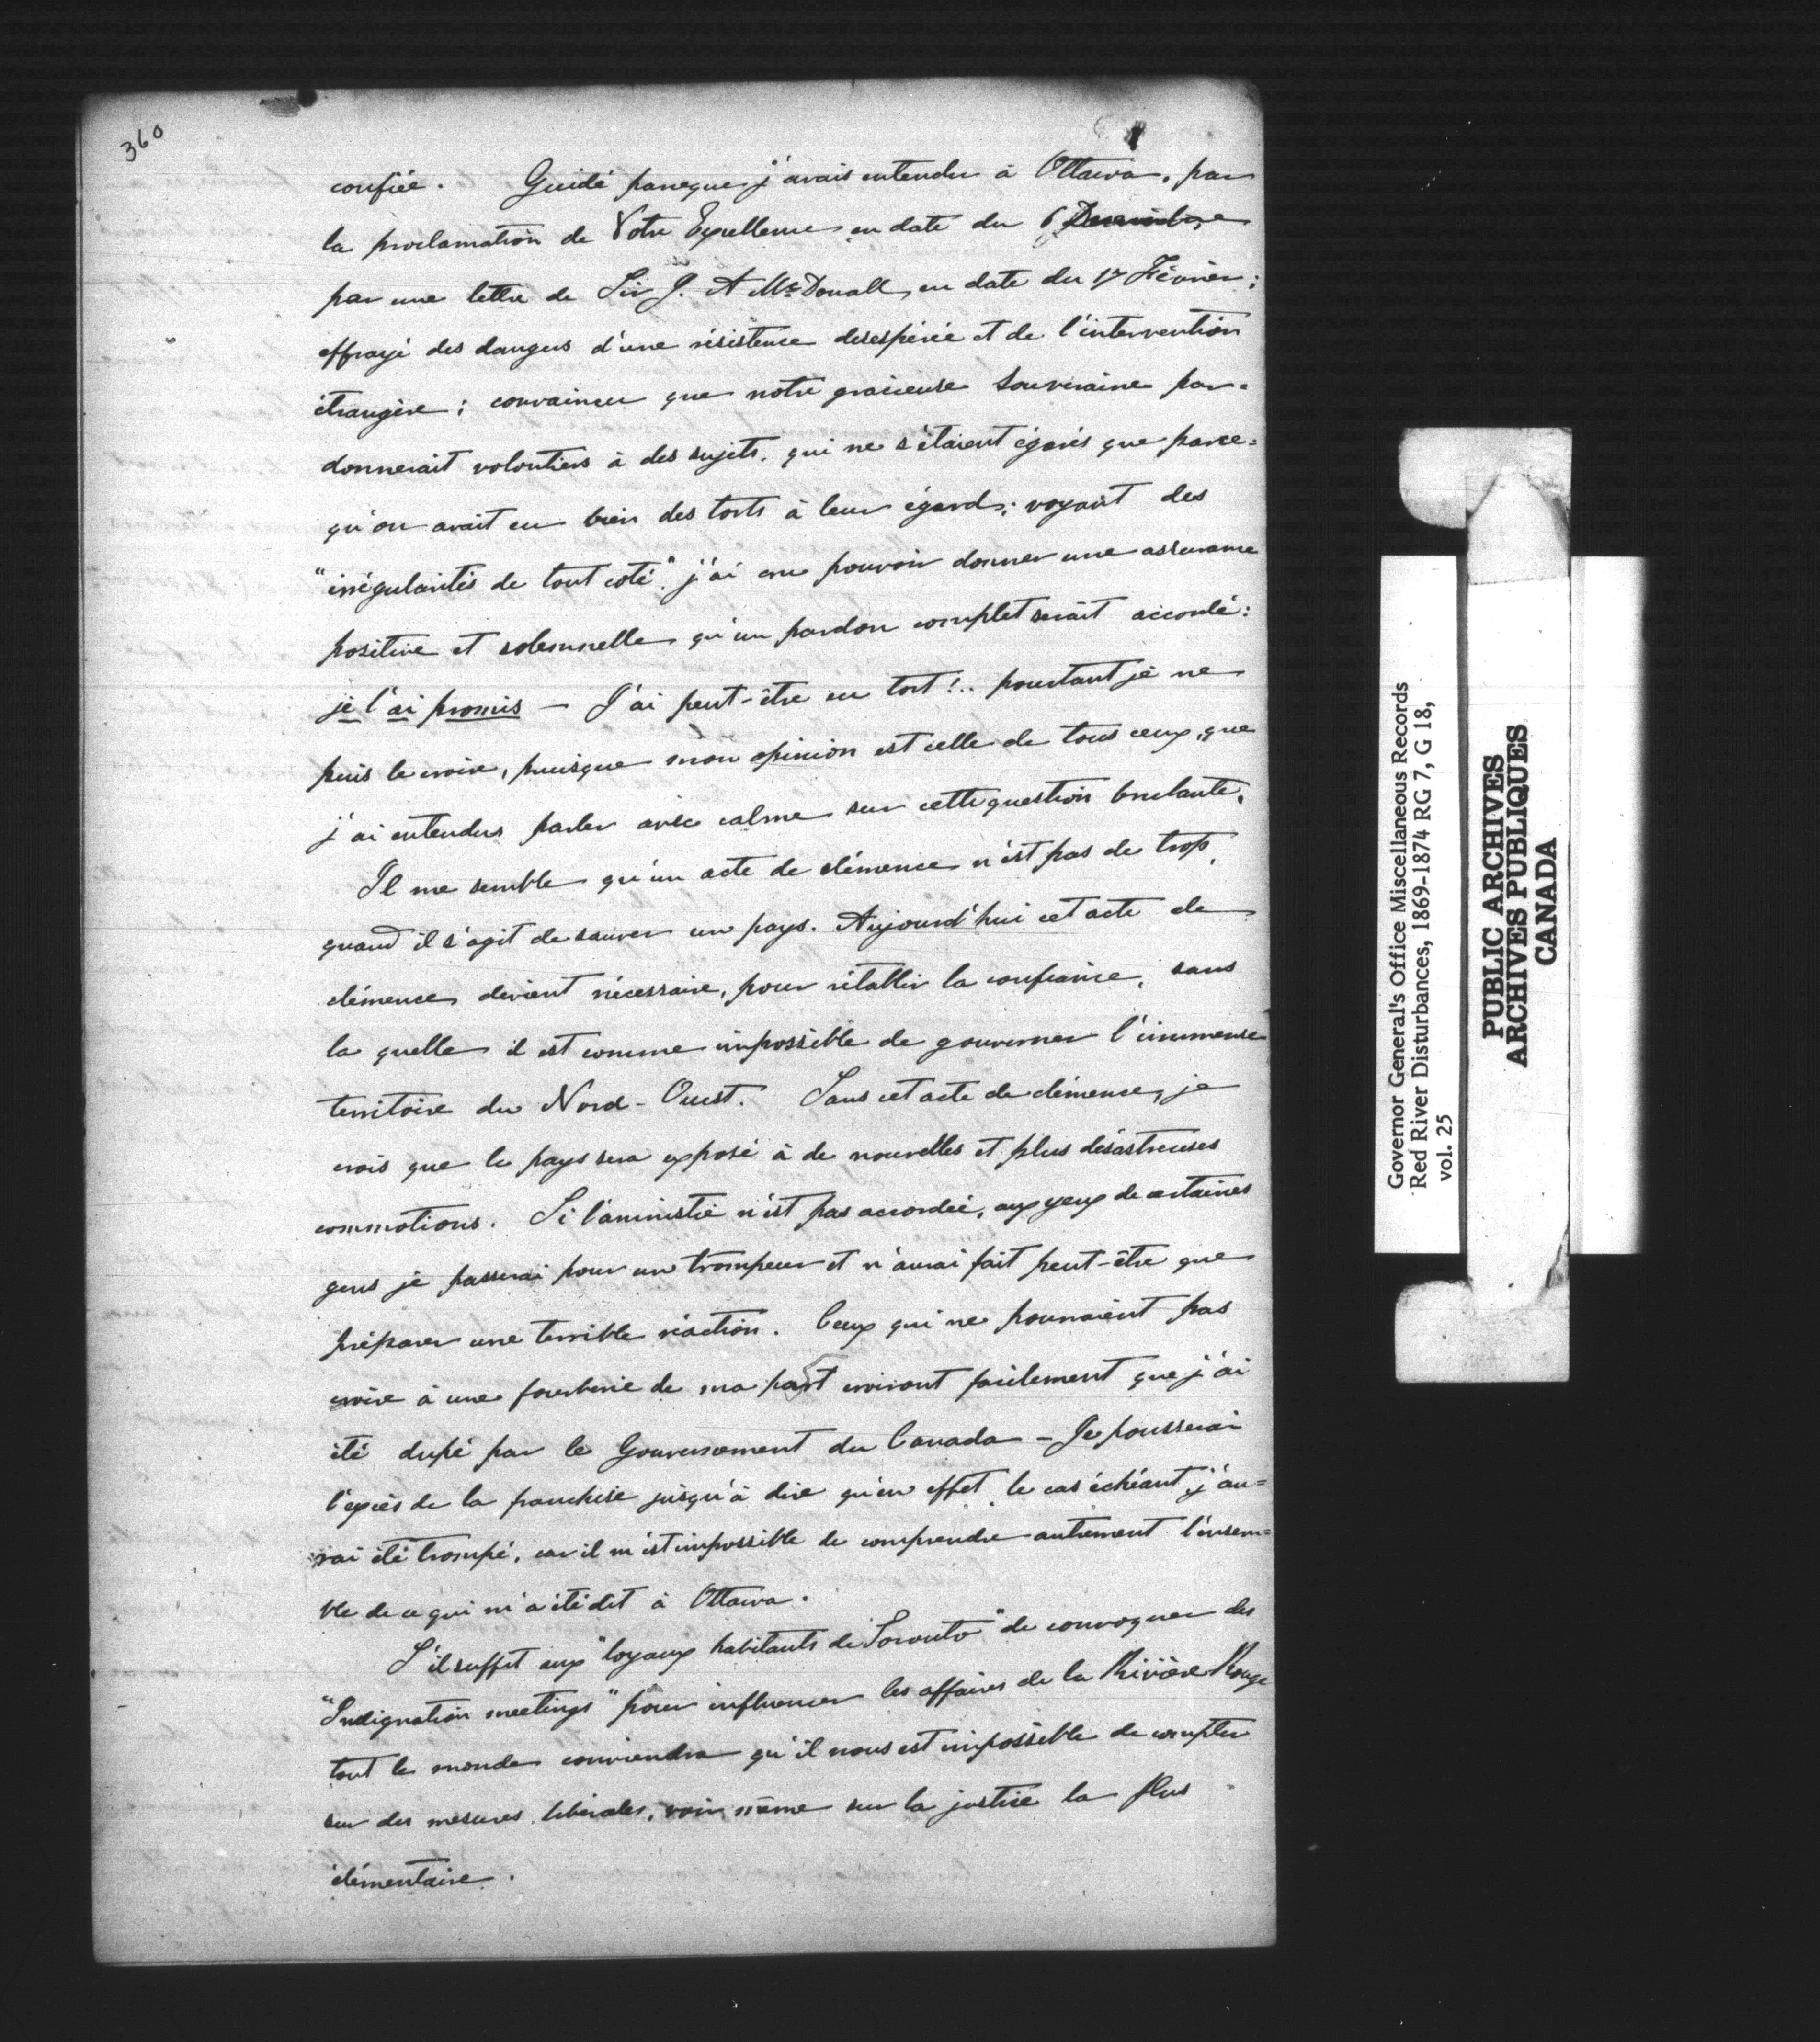 360
confiée. Guidé par ce que j'avais entendu à Ottawa, par
la proclamation de Votre Excellence en date du 6 Decembre
par une lettre de Sir J. A McDonall, en date du 17 Février;
effrayé des dangers d'une résistence desespérée et de l'intervention
étrangère; convaincu que notre gracieuse Souveraine par-
donnerait volontiers à des sujets, qui ne s'étaient égarés que parce=
qu'on avait eu bien des torts à leur égard; voyant des
"irrégularités de tout coté", j'ai cru pouvoir donner une assurance
positive et solemnelle qu'un pardon complet serait accordé:
je l'ai promis — J'ai peut-être eu tort!.. pourtant je ne
puis le croire, puisque mon opinion est celle de tous ceux, que
j'ai entendus parler avec calme sur cette question brulante.
Il me semble qu'un acte de clémence n'est pas de trop,
quand il s'agit de sauver un pays. Aujourd'hui cet acte de
clémence devient nécessaire, pour rétablir la confiance, sans
la quelle il est comme impossible de gouverner l'immense
territoire du Nord-Ouest. Sans cet acte de clémence, je
crois que le pays sera exposé à de nouvelles et plus désastreuses
commotions. Si l'amnistie n'est pas accordée, aux yeux de certaines
gens je passerai pour un trompeur et n'aurai fait peut-être que
préparer une terrible réaction. Ceux qui ne pourraient pas
croire à une fourberie de ma part croiront facilement que j'ai
été dupé par le Gouvernement du Canada — Je pousserai
l'excès de la franchise jusqu'à dire qu'en effet, le cas échéant, j'au=
rai été trompé, car il m'est impossible de comprendre autrement l'ensem=
ble de ce qui m'a été dit à Ottawa.
S'il suffit aux "loyaux habitants de Toronto" de convoquer des
"Indignation meetings" pour influencer les affaires de la Rivière Rouge
tout le monde conviendra qu'il nous est impossible de compter
sur des mesures libérales, voir même sur la justice la plus
élémentaire.
Governor General's Office Miscellaneous Records
Red River Disturbances, 1869-1874 RG 7, G 18,
vol. 25
PUBLIC ARCHIVES
ARCHIVES PUBLIQUES
CANADA